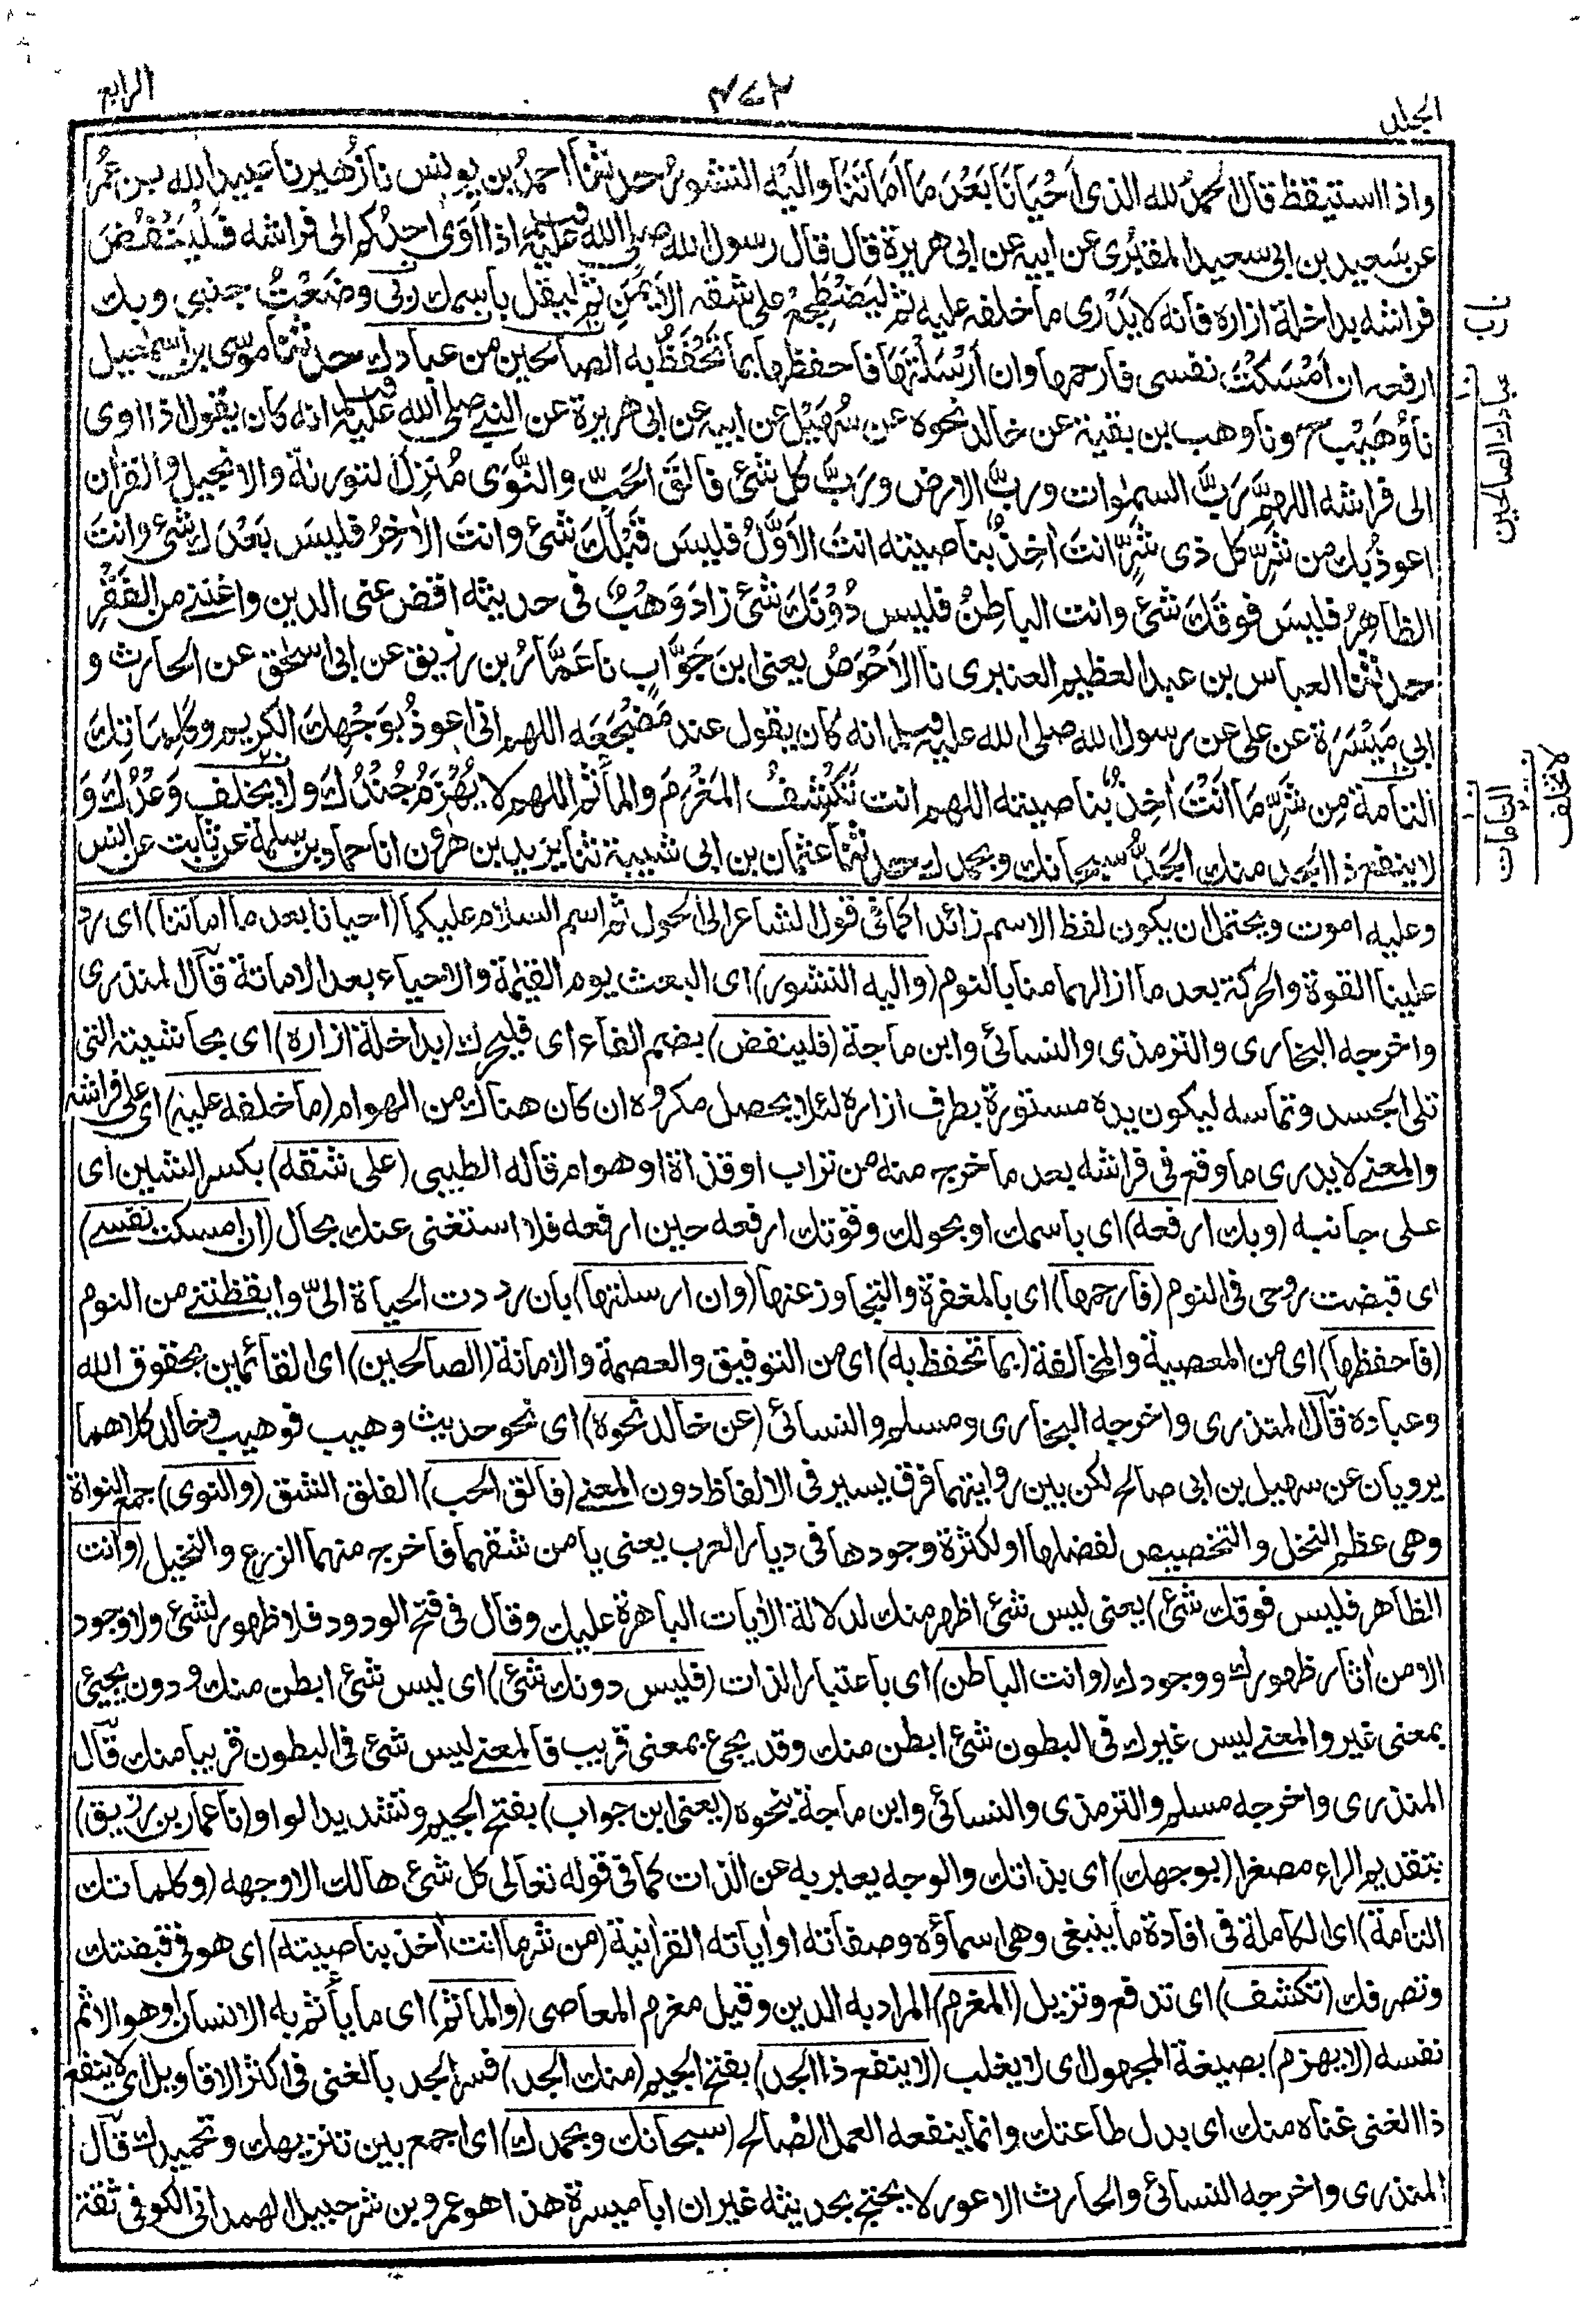 الجلد
٤٧٢
الرابع
واذا استيقظ قال الحمدُ لله الذى اَحْيَانَا بَعْدَ ما اَمَاتَنَا واليه النشورُ حدثنا احمدُ بن يونس نا زُهير نا عبيد الله بن عُمَرَ
عن سَعيد بن ابى سعيد المقبُرى عن ابيه عن ابى هريرة قال قال رسول الله صلى الله عليه وسلم اذا اَوَى احدُكم الى فراشه فَلْيَنْفُضْ
فراشَه بداخلة ازاره فانه لا يَدْرِى ما خلفه عليه ثم ليَضْطَجِعْ على شقه الاَيمَنِ ثم ليقل باسمك ربى وضَعْتُ جنبى وبك
ارفعه ان اَمْسَكْتَ نفسى فارحمها وان اَرْسَلْتَهَا فاحفظها بما تَحْفَظُ به الصالحين من عبادك حدثنا موسى بن اسمعيل
نا وُهَيْب ح ونا وهب بن بقية عن خالد نحوه عن سُهَيْل عن ابيه عن ابى هريرة عن النبى صلى الله عليه وسلم انه كان يقول اذا اوى
الى فراشه اللهمَّ رَبَّ السمٰوات وربَّ الارض ورَبَّ كل شئ فَالِقَ الحَبِّ والنَّوَى مُنَزِّلَ التورٰىة والانجيل والقراٰن
اعوذُ بك من شَرِّ كل ذى شَرٍّ انتَ اٰخِذٌ بناصيته انتَ الاَوَّلُ فليسَ قَبْلَكَ شئ وانتَ الاٰخِرُ فليسَ بَعْدَكَ شئ وانتَ
الظاهِرُ فليسَ فوقَكَ شئ وانت الباطِنُ فليس دُوْنَكَ شئ زادَ وَهْبٌ فى حديثه اقض عنى الدين واغننى من الفَقْرِ
حدثنا العباس بن عبد العظيم العنبرى نا الاَحْوَصُ يعنى ابنَ جَوَّابٍ نا عَمَّارُ بن رزيق عن ابى اسحٰق عن الحارث و
ابى مَيْسَرَةَ عن على عن رسول الله صلى الله عليه وسلم انه كان يقول عند مَضْجَعَه اللهم انى اعوذُ بوَجْهِكَ الكريم وكَلِمَاتِكَ
التامة مِن شَرِّ مَا اَنْتَ اٰخِذٌ بناصيته اللهم انت تَكْشفُ المَغْرَمَ والمأثَمَ اللهم لا يُهْزَمُ جُنْدُكَ ولا يُخْلَفُ وَعْدُكَ وَ
لا ينفع ذا الجَد منك الجَدُّ سبحانك وبحمدك حدثنا عثمان بن ابى شيبة ثنا يزيد بن هٰرون انا حماد بن سلمة عن ثابت عن انس
نا رب
عبادك الصالحين
التامات
لا تخلف
وعليه اموت ويحتمل ان يكون لفظ الاسم زائدا كما فى قول الشاعر الى الحول ثم اسم السلام عليكما (احيانا بعد ما اماتنا) اى رد
علينا القوة والحركة بعد ما ازالهما منا بالنوم (واليه النشور) اى البعث يوم القيٰمة والاحياء بعد الاماتة قال المنذرى
واخرجه البخارى والترمذى والنسائى وابن ماجة (فلينفض) بضم الفاء اى فليحرك (بداخلة ازاره) اى بحاشيته التى
تلى الجسد وتماسه ليكون يده مستورة بطرف ازاره لئلا يحصل مكروه ان كان هناك من الهوام (ما خلفه عليه) اى على فراشه
والمعنى لا يدرى ما وقع فى فراشه بعد ما خرج منه من تراب او قذاة او هوام قاله الطيبى (على شقه) بكسر الشين اى
على جانبه (وبك ارفعه) اى باسمك او بحولك وقوتك ارفعه حين ارفعه فلا استغنى عنك بحال (ان امسكت نفسى)
اى قبضت روحى فى النوم (فارحمها) اى بالمغفرة والتجاوز عنها (وان ارسلتها) بان رددت الحياة الىّ وايقظتنى من النوم
(فاحفظها) اى من المعصية والمخالفة (بما تحفظ به) اى من التوفيق والعصمة والامانة (الصالحين) اى القائمين بحقوق الله
وعباده قال المنذرى واخرجه البخارى ومسلم والنسائى (عن خالد نحوه) اى نحو حديث وهيب فوهيب وخالد كلاهما
يرويان عن سهيل بن ابى صالح لكن بين روايتهما فرق يسير فى الالفاظ دون المعنى (فالق الحب) الفلق الشق (والنوى) جمع النواة
وهى عظم النخل والتخصيص لفضلها او لكثرة وجودها فى ديار العرب يعنى يا من شقهما فاخرج منهما الزرع والنخيل (وانت
الظاهر فليس فوقك شئ) يعنى ليس شئ اظهر منك لدلالة الاٰيات الباهرة عليك وقال فى فتح الودود فلا ظهور لشئ ولا وجود
الا من اٰثار ظهورك ووجودك (وانت الباطن) اى باعتبار الذات (فليس دونك شئ) اى ليس شئ ابطن منك ودون يجيئ
بمعنى غير والمعنى ليس غيرك فى البطون شئ ابطن منك وقد يجئ بمعنى قريب فالمعنى ليس شئ فى البطون قريبا منك قال
المنذرى واخرجه مسلم والترمذى والنسائى وابن ماجة بنحوه (يعنى ابن جواب) بفتح الجيم وتشديد الواو (نا عمار بن رزيق)
بتقديم الراء مصغرا (بوجهك) اى بذاتك والوجه يعبر به عن الذات كما فى قوله تعالى كل شئ هالك الا وجهه (وكلماتك
التامة) اى الكاملة فى افادة ما ينبغى وهى اسماؤه وصفاته او اٰياته القراٰنية (من شر ما انت اٰخذ بناصيته) اى هو فى قبضتك
وتصرفك (تكشف) اى تدفع وتزيل (المغرم) المراد به الدين وقيل مغرم المعاصى (والمأثم) اى ما يأثم به الانسان او هو الاثم
نفسه (لا يهزم) بصيغة المجهول اى لا يغلب (لا ينفع ذا الجد) بفتح الجيم (منك الجد) فسر الجد بالغنى فى اكثر الاقاويل اى لا ينفع
ذا الغنى غناه منك اى بدل طاعتك وانما ينفعه العمل الصالح (سبحانك وبحمدك) اى اجمع بين تنزيهك وتحميدك قال
المنذرى واخرجه النسائى والحارث الاعور لا يحتج بحديثه غير ان ابا ميسرة هذا هو عمرو بن شرحبيل الهمدانى الكوفى ثقة